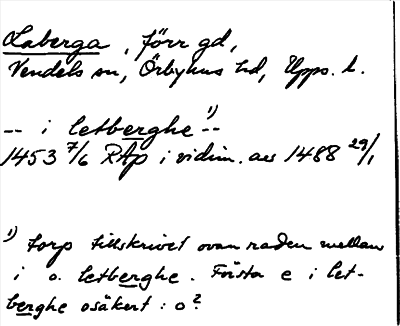 Laberga, förr gd,
Vendels sn, Örbyhus hd, Upps. l.
-- i letberghe 1) --
1453 7/6 RAp i vidim. av 1488 29/1
1) torp tillskrivet ovan raden mellan
i o. letberghe. Första e i let-
berghe osäkert: o?